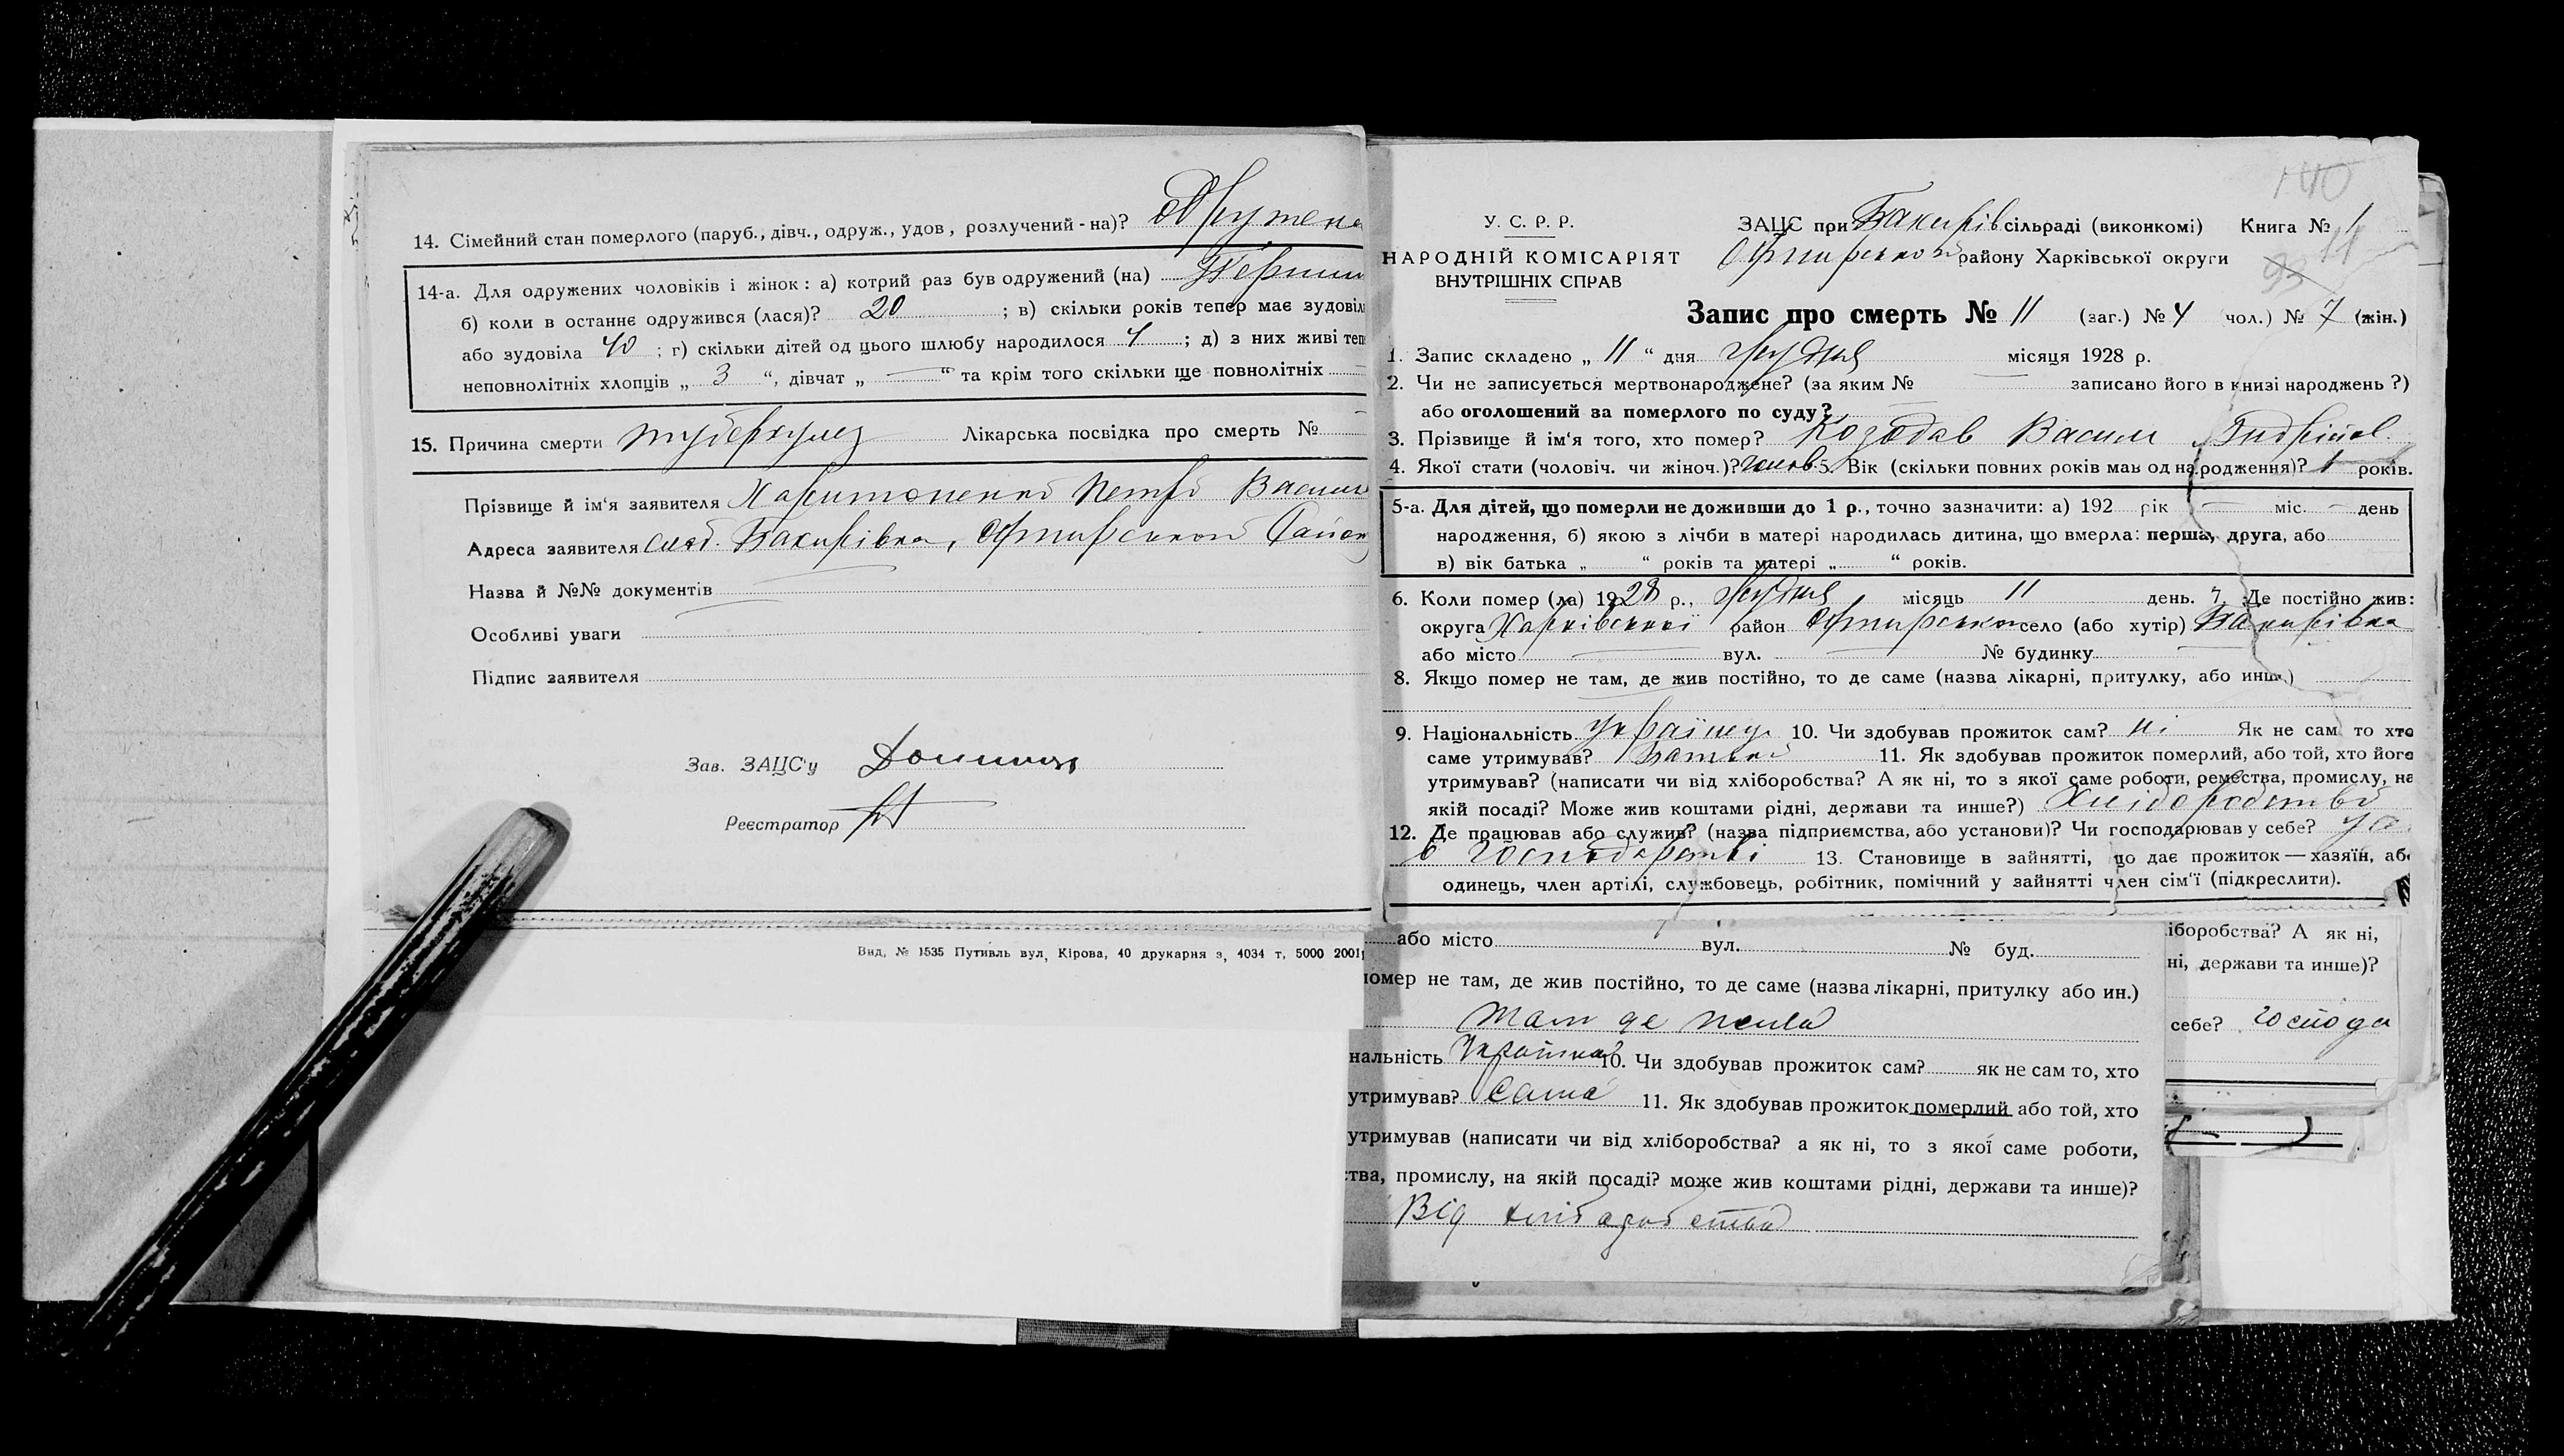 14. Сімейний стан померлого (паруб., дівч., одруж., удов, розлучений-на)? Одружена
14-а. Для одружених чоловіків і жінок: а) котрий раз був одружений (на)
б) коли в останнє одружився (лася)? 20 ; в) скільки років тепер має зудовіл
або зудовіла 40 ; г) скільки дітей од цього шлюбу народилося 4 ; д) з них живі теп
неповнолітніх хлопців „ 3 “, дівчат „ — “ та крім того скільки ще повнолітніх —
15. Причина смерти туберкулез Лікарська посвідка про смерть № —
Прізвище й ім'я заявителя Харитоненко Петро Васил
Адреса заявителя слоб. Бакирівка, Охтирського Район
Назва й №№ документів
Особливі уваги
Підпис заявителя
Зав. ЗАЦС'у
Реєстратор
Вид. № 1535 Путивль вул, Кірова, 40 друкарня з, 4034 т, 5000 2001
140
У. С. Р. Р.
НАРОДНІЙ КОМІСАРІЯТ
ВНУТРІШНІХ СПРАВ
ЗАЦС при Бакирів сільраді (виконкомі) Книга № 1
Охтирського району Харківської округи
93
Запис про смерть № 11 (заг.) № 4 (чол.) № 7 (жін.)
1. Запис складено „ 11 “ дня Грудня місяця 1928 р.
2. Чи не записується мертвонароджене? (за яким № — записано його в книзі народжень?)
або оголошений за померлого по суду?
3. Прізвище й ім'я того, хто помер? Козодав Васил
4. Якої стати (чоловіч. чи жіноч.)? чолов. 5. Вік (скільки повних років мав од народження)? 1 років.
5-а. Для дітей, що померли не доживши до 1 р., точно зазначити: а) 192 рік — міс. — день
народження, б) якою з лічби в матері народилась дитина, що вмерла: перша, друга, або
в) вік батька „ “ років та матері „ “ років.
6. Коли помер (ла) 1928 р., Грудня місяць 11 день. 7. Де постійно жив:
округа Харківської район Охтирсько село (або хутір) Бакирівка
або місто — вул. — № будинку —
8. Якщо помер не там, де жив постійно, то де саме (назва лікарні, притулку, або инш.)
9. Національність Українець 10. Чи здобував прожиток сам? ні Як не сам то хто
саме утримував? Батько 11. Як здобував прожиток померлий, або той, хто його
утримував? (написати чи від хліборобства? А як ні, то з якої саме роботи, ремества, промислу, на
якій посаді? Може жив коштами рідні, держави та инше?) Хліборобство
12. Де працював або служив? (назва підприємства, або установи)? Чи господарював у себе?
в господарстві 13. Становище в зайнятті, що дає прожиток — хазяїн, або
одинець, член артілі, службовець, робітник, помічний у зайнятті член сім'ї (підкреслити).
або місто вул. № буд.
помер не там, де жив постійно, то де саме (назва лікарні, притулку або ин.)
там де жила
нальність Українка 10. Чи здобував прожиток сам? як не сам то, хто
утримував? Сама 11. Як здобував прожиток померлий або той, хто
утримував (написати чи від хліборобства? а як ні, то з якої саме роботи,
тва, промислу, на якій посаді? може жив коштами рідні, держави та инше)?
Від хліборобства
іборобства? А як ні,
ні, держави та инше)?
себе? господа